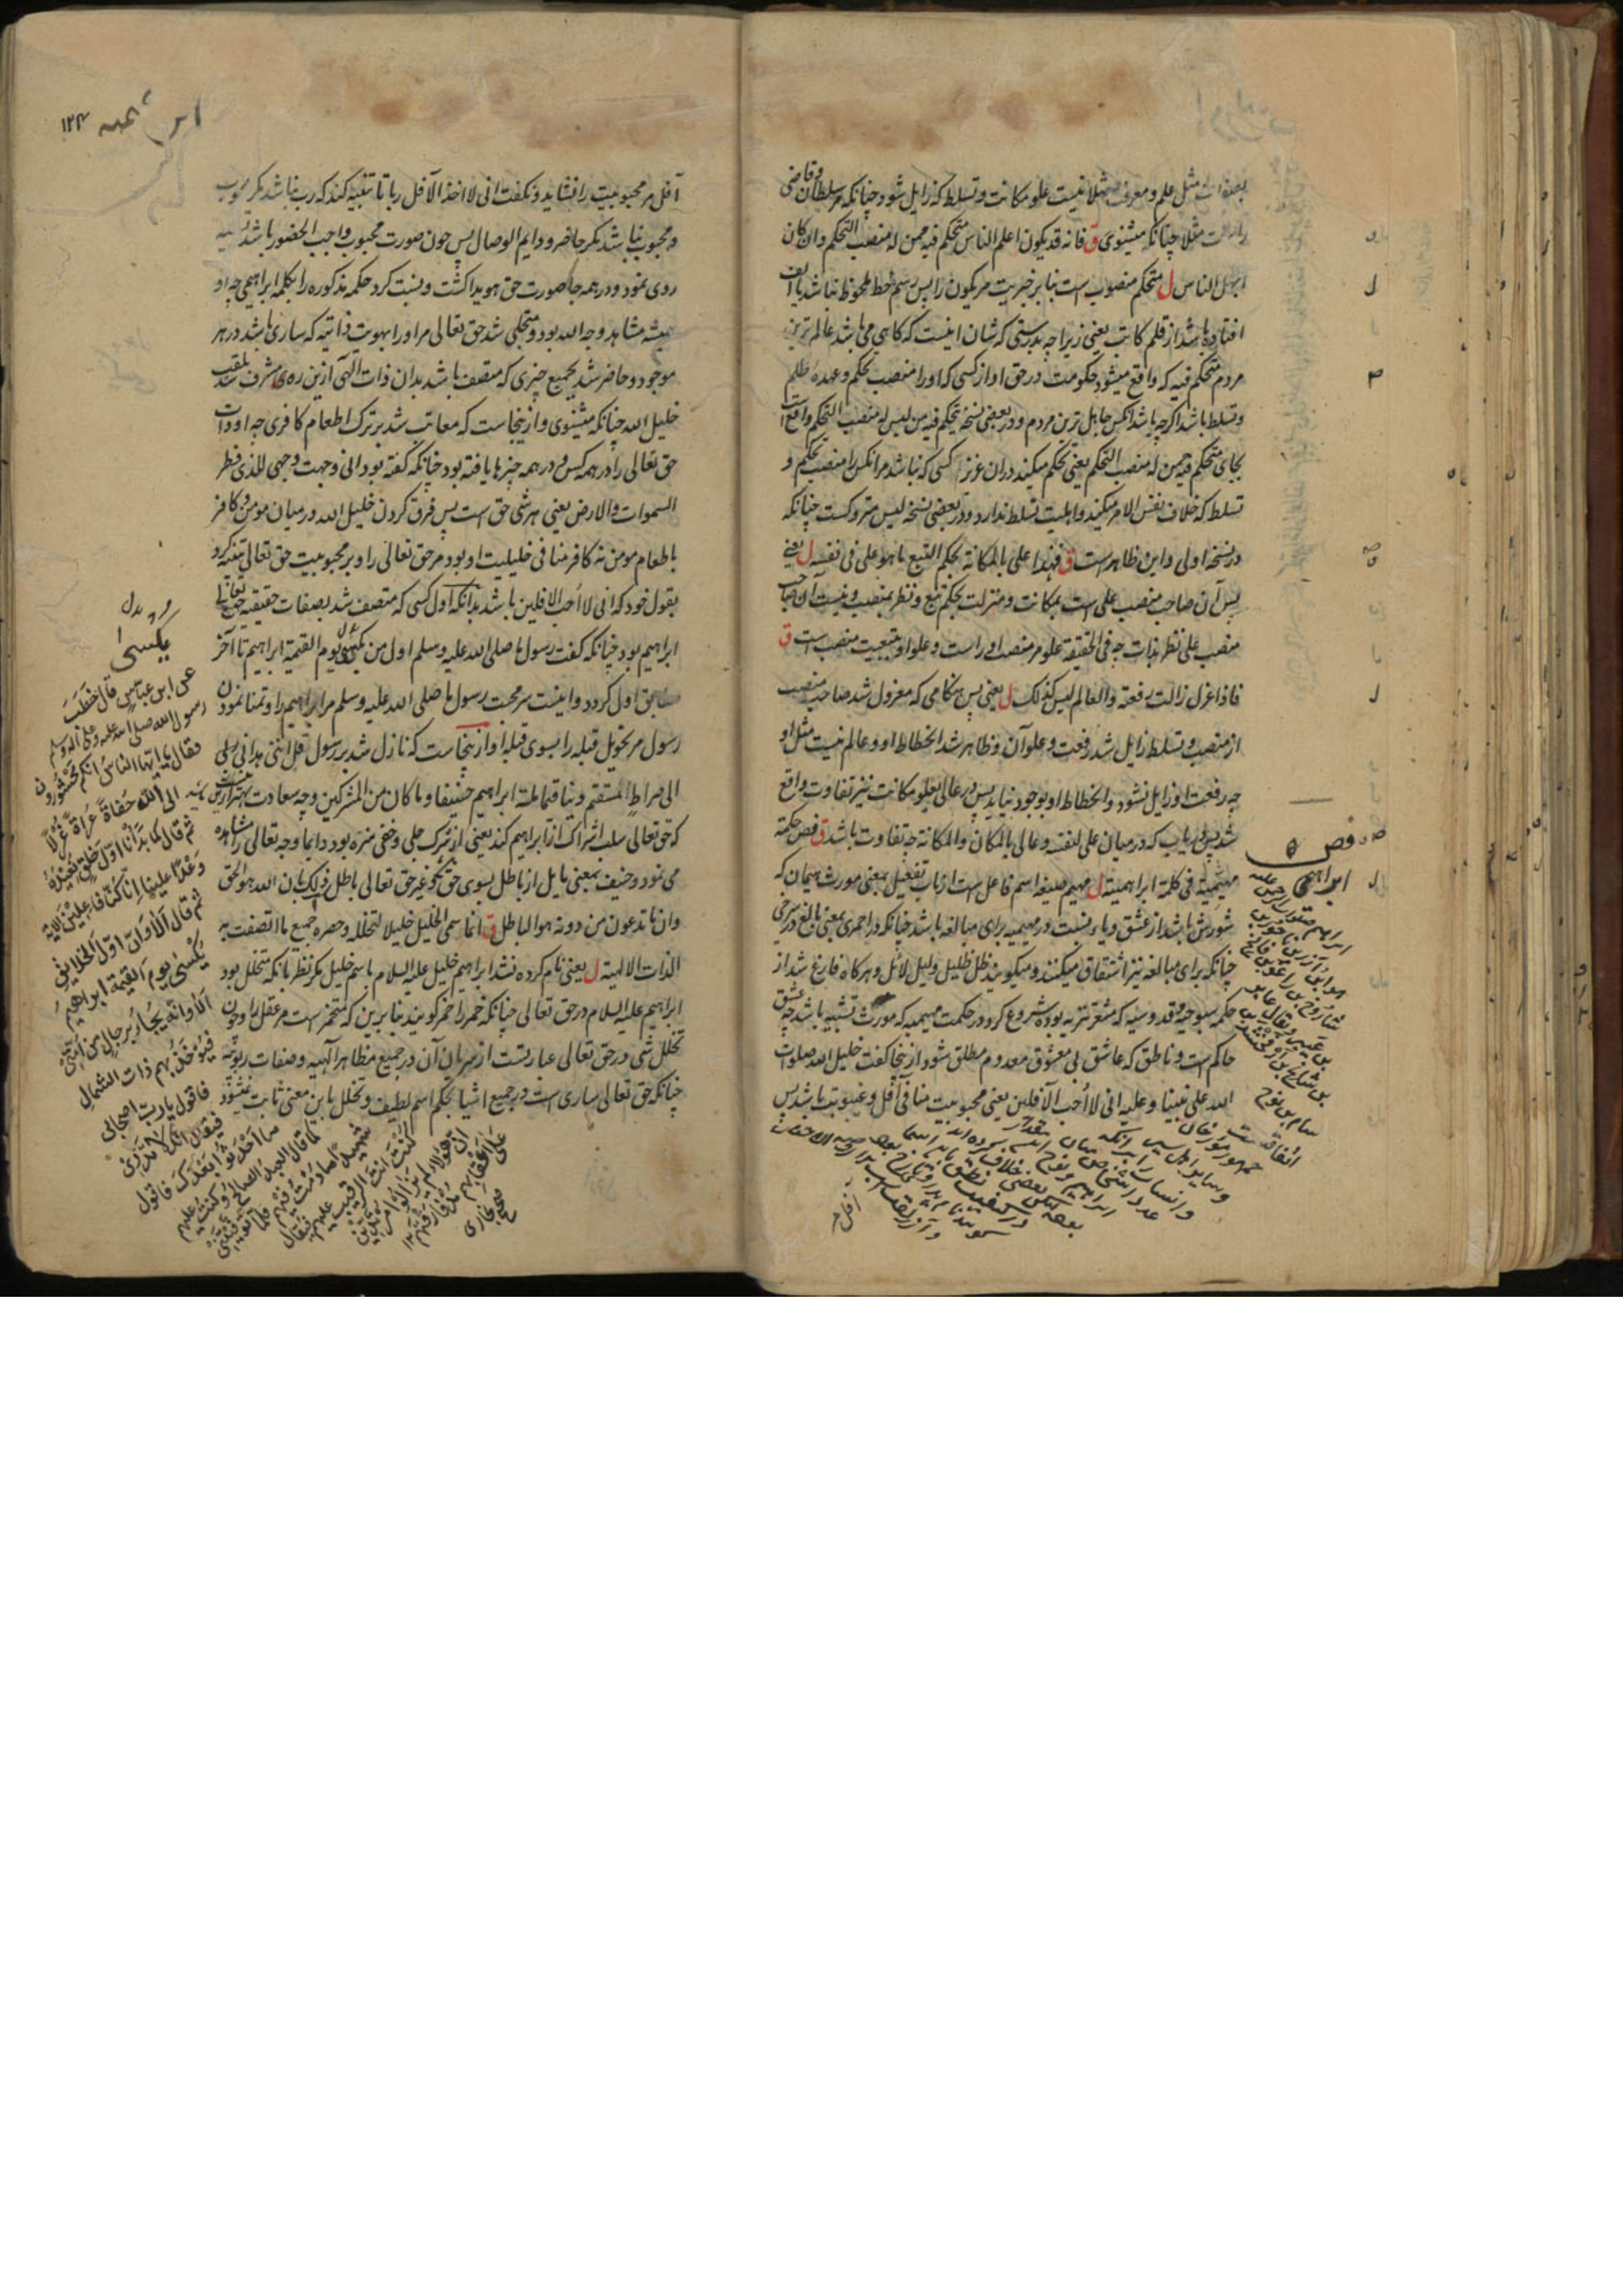 بصفات مثل علم و معرفت مثلا نیست علو مکانت و تسلط که زایل شود چنانکه مر سلطان و قاضی
راست مثلا چنانکه میشنوی ق فانه قد یکون اعلم الناس متحکم فیه من له منصب التحکم وان کان
اجهل الناس ل متحکم منصوب است بنابر خبریت مر یکون را پس رسم خط ملحوظ نباشد یا الف
افتاده باشد از قلم کاتب یعنی زیرا چه بدرستی که شان اینست که کاهی می باشد عالم ترین
مردم متحکم فیه که واقع میشود حکومت در حق او از کسی که او را منصب تحکم و عهده ظلم
و تسلط باشد اکرچه باشد آنکس جاهل ترین مردم و در بعضی نسخه یتحکم فیه من لیس له منصب التحکم واقع است
بجای متحکم فیه من له منصب التحکم یعنی تحکم میکند دران عزیز کسی که نباشد مر آنکس را منصب تحکم و
تسلط که خلاف نفس الامر میکند و اهلیت تسلط ندارد و در بعضی نسخه لیس متروکست چنانکه
در نسخه اولی و این ظاهر است ق فهذا علی بالمکانة بحکم التبع ما هو علی فی نفسه ل یعنی
پس آن صاحب منصب علی است بمکانت و منزلت بحکم تبع و نظر بمنصب و نیست آن صاحب
منصب علی نظر بذات چه فی الحقیقة علو مر منصب او راست و علو او بتبعیت منصب است ق
فاذا عزل زالت رفعته والعالم لیس کذلک ل یعنی پس هنکامی که معزول شد صاحب منصب
از منصب و تسلط زایل شد رفعت و علو آن و ظاهر شد انحطاط او و عالم نیست مثل او
چه رفعت او زایل نشود و انحطاط او بوجود نیاید پس در عالی بعلو مکانت نیز تفاوت واقع
شد پس دریاب که در میان علی لنفسه و عالی بالمکان والمکانة چه تفاوت باشد ق فص حکمة
مهیمیة فی کلمة ابراهیمیة ل مهیم صیغه اسم فاعل است از باب تفعیل بمعنی مورث هیمان که
شورش باشد از عشق و یاء نسبت در مهیمیه برای مبالغه باشد چنانکه در احمری بمعنی بالغ در سرخی
چنانکه برای مبالغه نیز اشتقاق میکنند و میکویند ظل ظلیل و لیل لائل و هرکاه فارغ شد از
حکمه سبوحیه و قدوسیه که مشعر تنزیه بوده شروع کرد در حکمت مهیمیه که مورث تشبیه باشد چه عشق
حاکم است و ناطق که عاشق بی معشوق معدوم مطلق شود از ینجا کفت خلیل الله صلوات
الله علی نبینا و علیه انی لا احب الآفلین یعنی محبوبیت منافی افل و غیبوبت باشد پس
فص
ابراهیمی
آفل
آفل مر محبوبیت را نشاید و نکفت انی لا اخذ الآفل ربا تا تنبیه کند که رب نباشد مکر محبوب
و محبوب نباشد مکر حاضر و دایم الوصال پس چون صورت محبوب واجب الحضور باشد
روی نمود و در همه جا صورت حق هویدا کشت و نسبت کرد حکمه مذکوره را بکلمه ابراهیمی چه او
همیشه مشاهد وجه الله بود و متجلی شد حق تعالی مر او را بهویت ذاتیه که ساری باشد در هر
موجود و حاضر شد بجمیع چیزی که متصف باشد بدان ذات الهی ازین ره مشرف شد بلقب
خلیل الله چنانکه میشنوی و از ینجاست که معاتب شد بر ترک اطعام کافری چه او ذات
حق تعالی را در همه کس و در همه چیزها یافته بود چنانکه کفته بود انی وجهت وجهی للذی فطر
السموات والارض یعنی هر شی حق است پس فرق کردن خلیل الله در میان مومن و کافر
باطعام مومن نه کافر منافی خلیلیت او بود مر حق تعالی را و بر محبوبیت حق تعالی تنبیه کرد
بقول خود که انی لا احب الافلین باشد بدانکه اول کسی که متصف شد بصفات حقیقیه حق تعالی
ابراهیم بود چنانکه کفت رسول ما صلی الله علیه وسلم اول من یکسی یوم القیمة ابراهیم تا آخر
سابق اول کردد و اینست سر محبت رسول ما صلی الله علیه وسلم مر ابراهیم را و تمنا نمودن
رسول مر تحویل قبله را بسوی قبله او از ینجاست که نازل شد بر رسول قل اننی هدانی ربی
الی صراط مستقیم دینا قیما ملة ابراهیم حنیفا وما کان من المشرکین وچه سعادت
که حق تعالی سلب اشراک از ابراهیم کند یعنی از شرک جلی و خفی منزه بود و دایما وجه تعالی را مشاهده
می نمود و حنیف بمعنی مایل از باطل بسوی حق و غیر حق تعالی باطل ذلک بان الله هو الحق
وان ما تدعون من دونه هو الباطل ق انما سمی الخلیل خلیلا لتخلله و حصره جمیع ما اتصفت به
الذات الالهیة ل یعنی نام کرده نشد ابراهیم خلیل علیه السلام باسم خلیل مکر نظر بانکه متخلل بود
ابراهیم علیه السلام در حق تعالی چنانکه خمر را خمر کویند بنابرین که متخمر است مر عقل را و چون
تخلل شی در حق تعالی عبارتست از سریان آن در جمیع مظاهر الهیه و صفات ربوبیه
چنانکه حق تعالی ساری است در جمیع اشیا بحکم اسم لطیف و تخلل باین معنی ثابت نمیشود
۱۲۴
یکسی
عن ابن عباس قال خطب
رسول الله صلی الله علیه وعلی آله وسلم
فقال یا ایها الناس انکم محشورون
الی الله حفاة عراة غرلا
ثم قال کما بدانا اول خلق نعیده
وعدا علینا انا کنا فاعلین الایة
ثم قال الا وان اول الخلایق
یکسی یوم القیمة ابراهیم
الا وانه یجاء برجال من امتی
فیؤخذ بهم ذات الشمال
فاقول یا رب اصحابی
فیقال انک لا تدری
ما احدثوا بعدک فاقول
کما قال العبد الصالح وکنت علیهم
شهیدا ما دمت فیهم فلما توفیتنی
کنت انت الرقیب علیهم فیقال
ان هؤلاء لم یزالوا مرتدین
علی اعقابهم منذ فارقتهم
صحیح بخاری